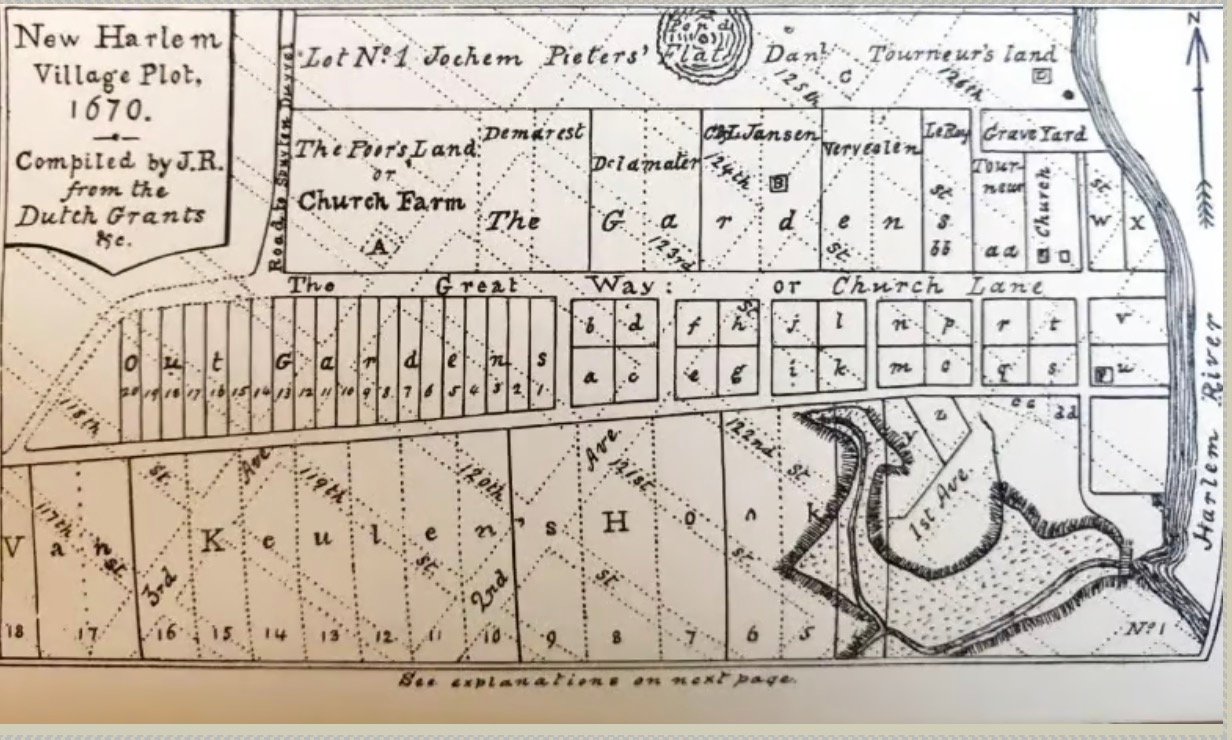 New Harlem
Village Plot,
1670.
Compiled by J.R.
from the
Dutch Grants
&c.
Road to Spuyten Duyvel
Lot No. 1 Jochem Pieters' Flat
Pond
Danl. Tourneur's land
C
125th
126th
N
The Poor's Land
or
Church Farm
A
Demarest
Delamater
Jansen
124th
B
Verveelen
LeRoy
Grave Yard
Tour-
neur
Church
St
St
W X
The Gardens
123rd
St
bb
aa
The Great Way: or Church Lane
Out Gardens
20 19 18 17 16 15 14 13 12 11 10 9 8 7 6 5 4 3 2 1
b d f h j l n p r t v
St
a c e g i k m o q s u
cc
dd
z
118th
St.
Ave.
119th
St.
120th
Ave.
121st
St.
122nd
St.
St.
117th
St
3rd
2nd
1st Ave.
Van Keulen's Hook
18 17 16 15 14 13 12 11 10 9 8 7 6 5
No. 1
Harlem River
See explanations on next page.